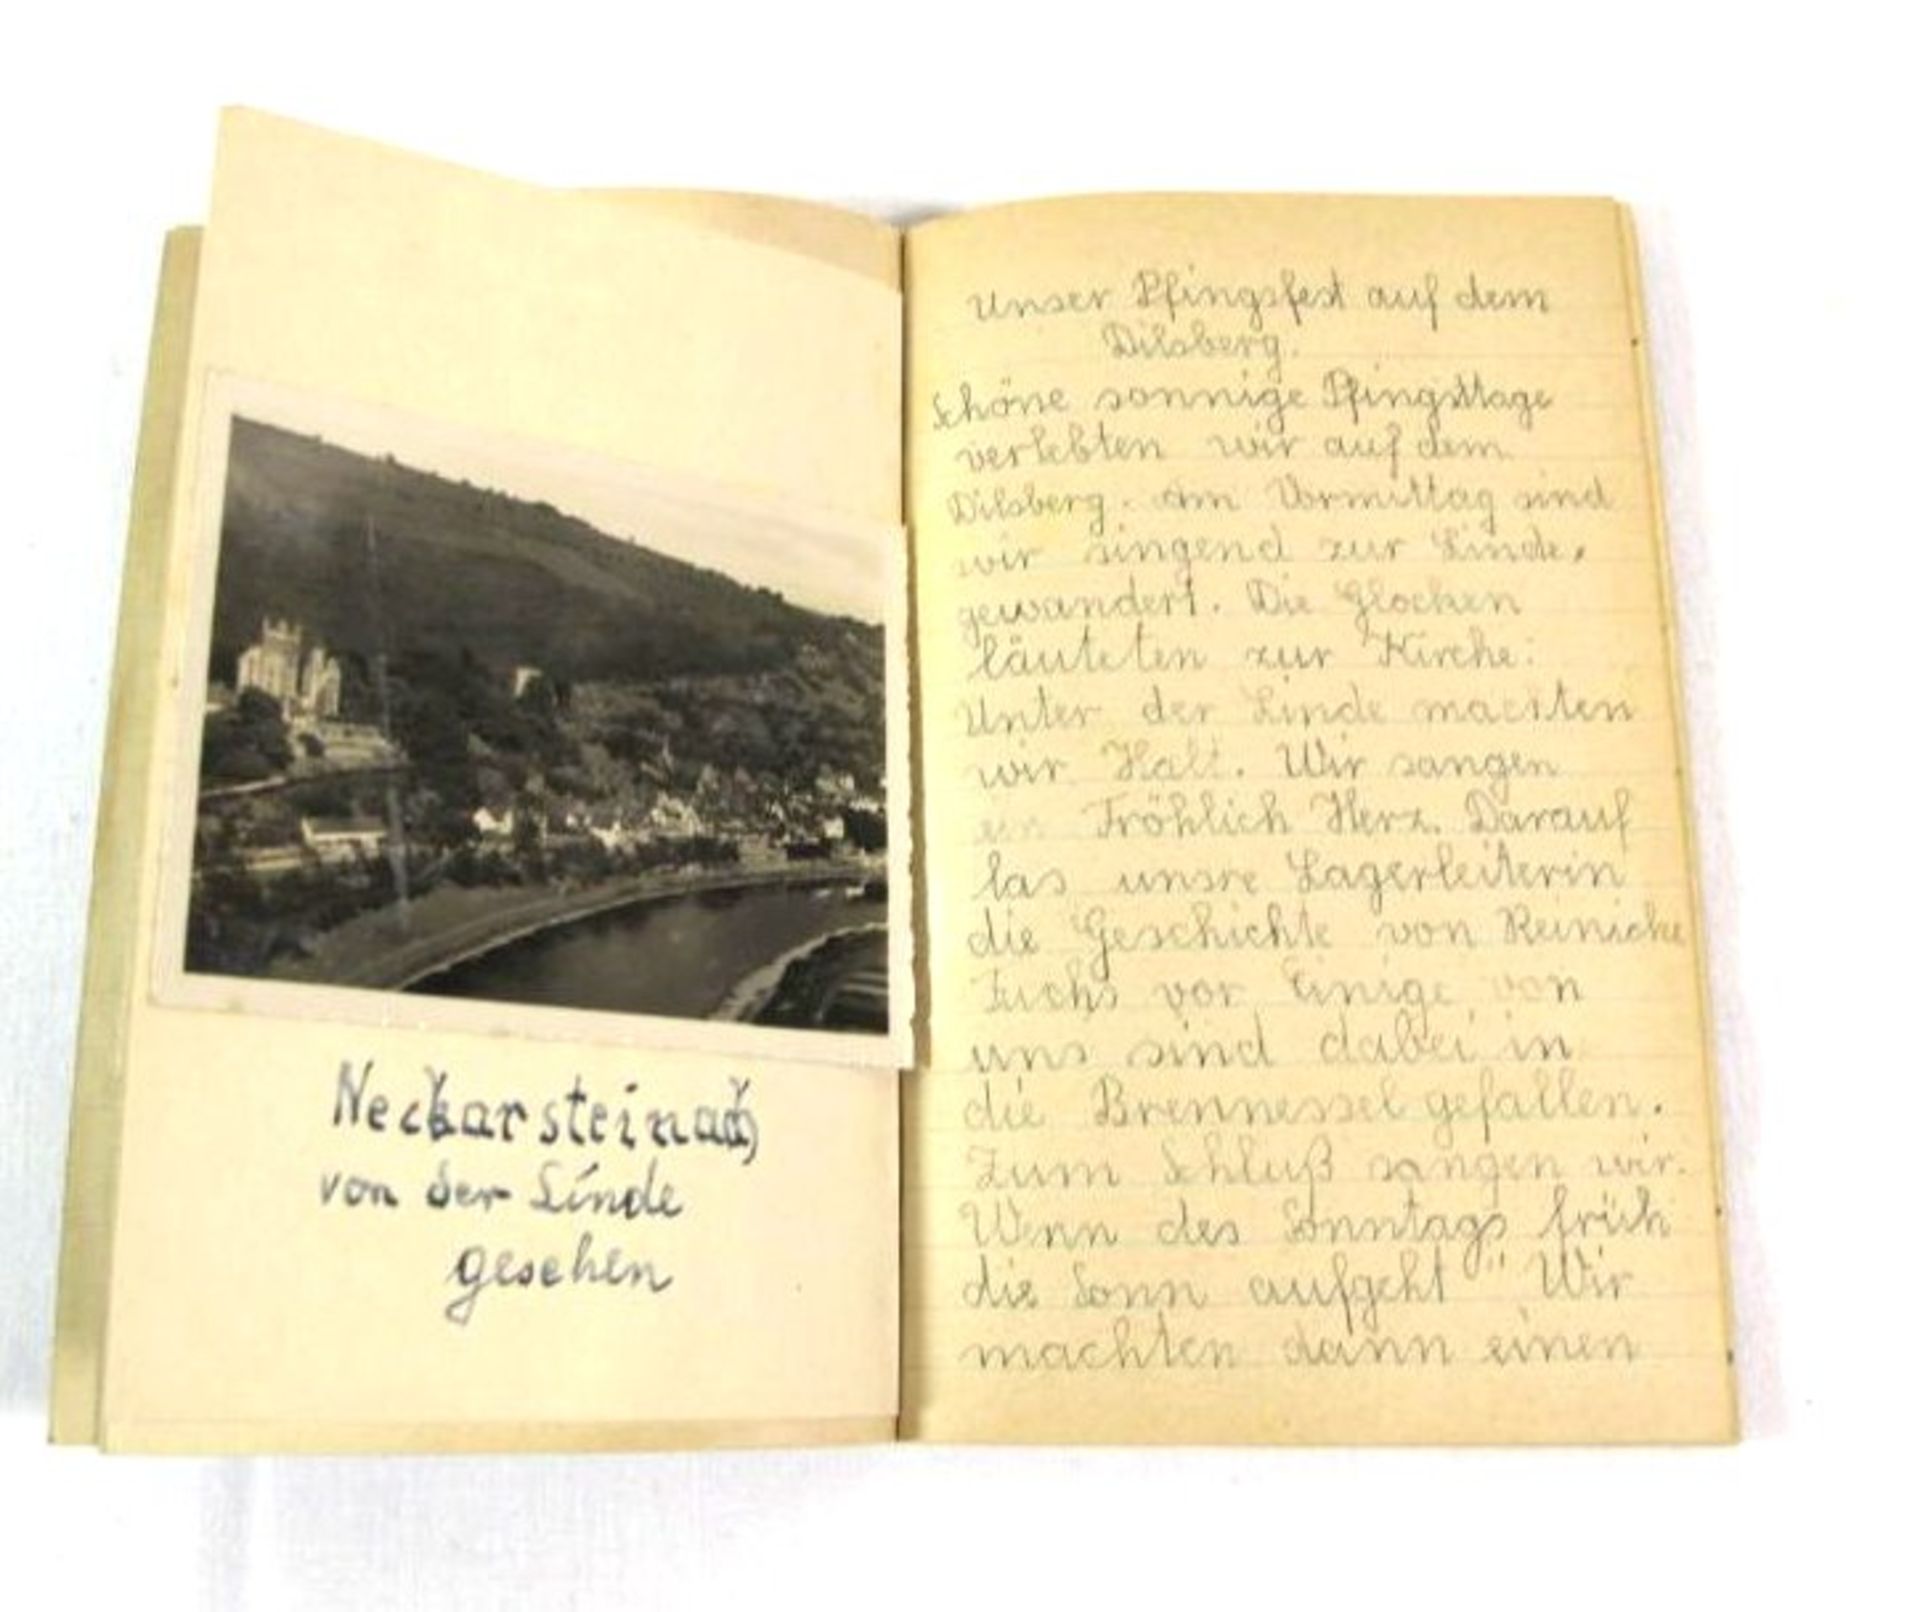 Neckarsteinach
von der Linde
gesehen
Unser Pfingsfest auf dem
Dilsberg.
Schöne sonnige Pfingsttage
verlebten wir auf dem
Dilsberg. Am Vormittag sind
wir singend zur Linde,
gewandert. Die Glocken
läuteten zur Kirche.
Unter der Linde machten
wir Halt. Wir sangen
Fröhlich Herz. Darauf
las unsre Lagerleiterin
die Geschichte von Reinicke
Fuchs vor Einige von
uns sind dabei in
die Brennessel gefallen.
Zum Schluß sangen wir.
Wenn des Sonntags früh
die Sonn aufgeht" Wir
machten dann einen